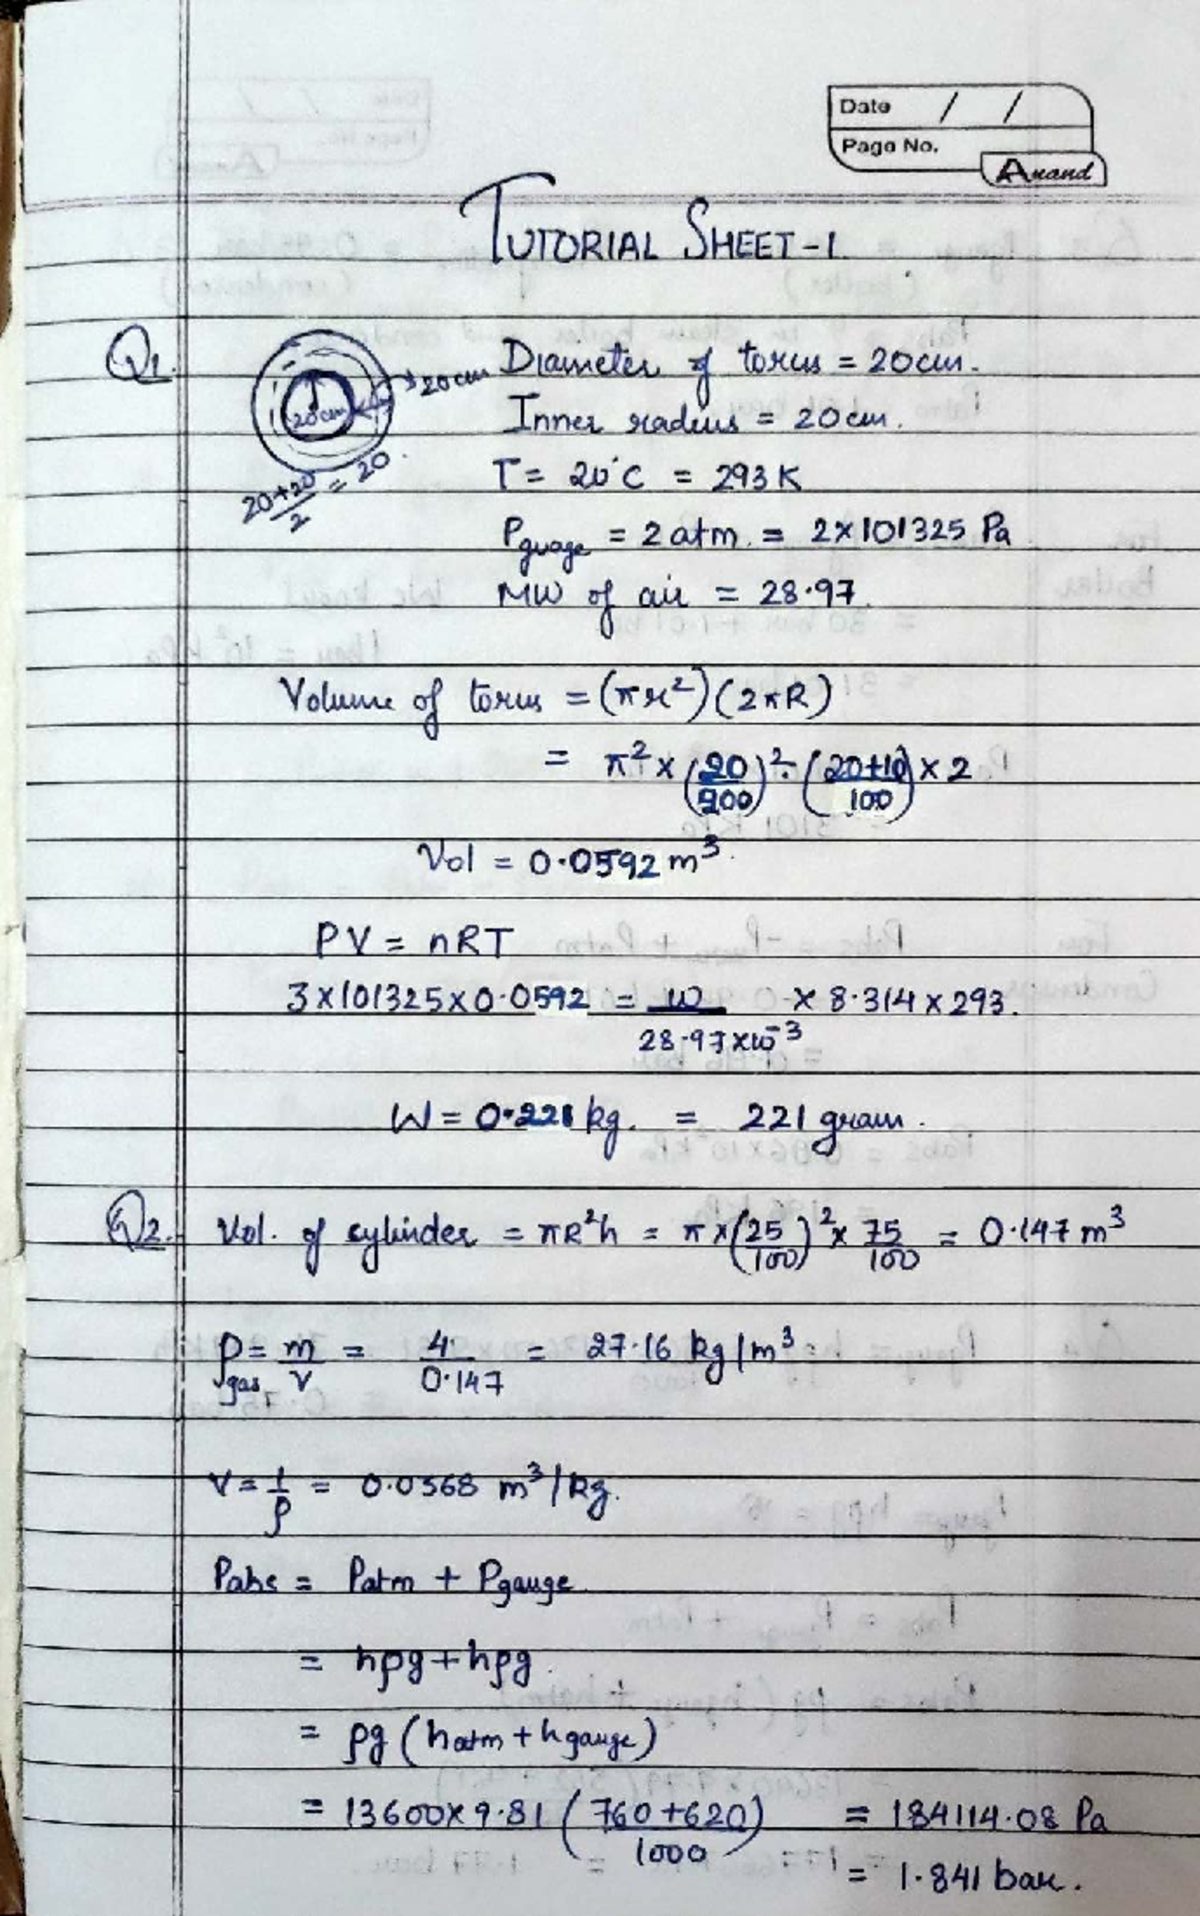 Date / /
Page No.
Anand
TUTORIAL SHEET-1.
Q1.
20cm
20cm
20+20/2 = 20.
Diameter of torus = 20cm.
Inner radius = 20cm.
T = 20°C = 293K
Pguage = 2atm. = 2×101325 Pa
MW of air = 28.97.
Volume of torus = (πr²)(2πR)
= π² × (20/200)² · (20+10/100) × 2
Vol = 0.0592 m³.
PV = nRT
3×101325×0.0592 = w/28.97×10⁻³ × 8.314 × 293.
W = 0.221 kg. = 221 gram.
Q2. Vol. of cylinder = πR²h = π×(25/100)² × 75/100 = 0.147 m³
ρgas = m/v = 4/0.147 = 27.16 kg/m³
v = 1/ρ = 0.0368 m³/kg.
Pabs = Patm + Pgauge.
= hρg + hρg.
= ρg (hatm + hgauge)
= 13600×9.81 (760+620/1000) = 184114.08 Pa
= 1.841 bar.